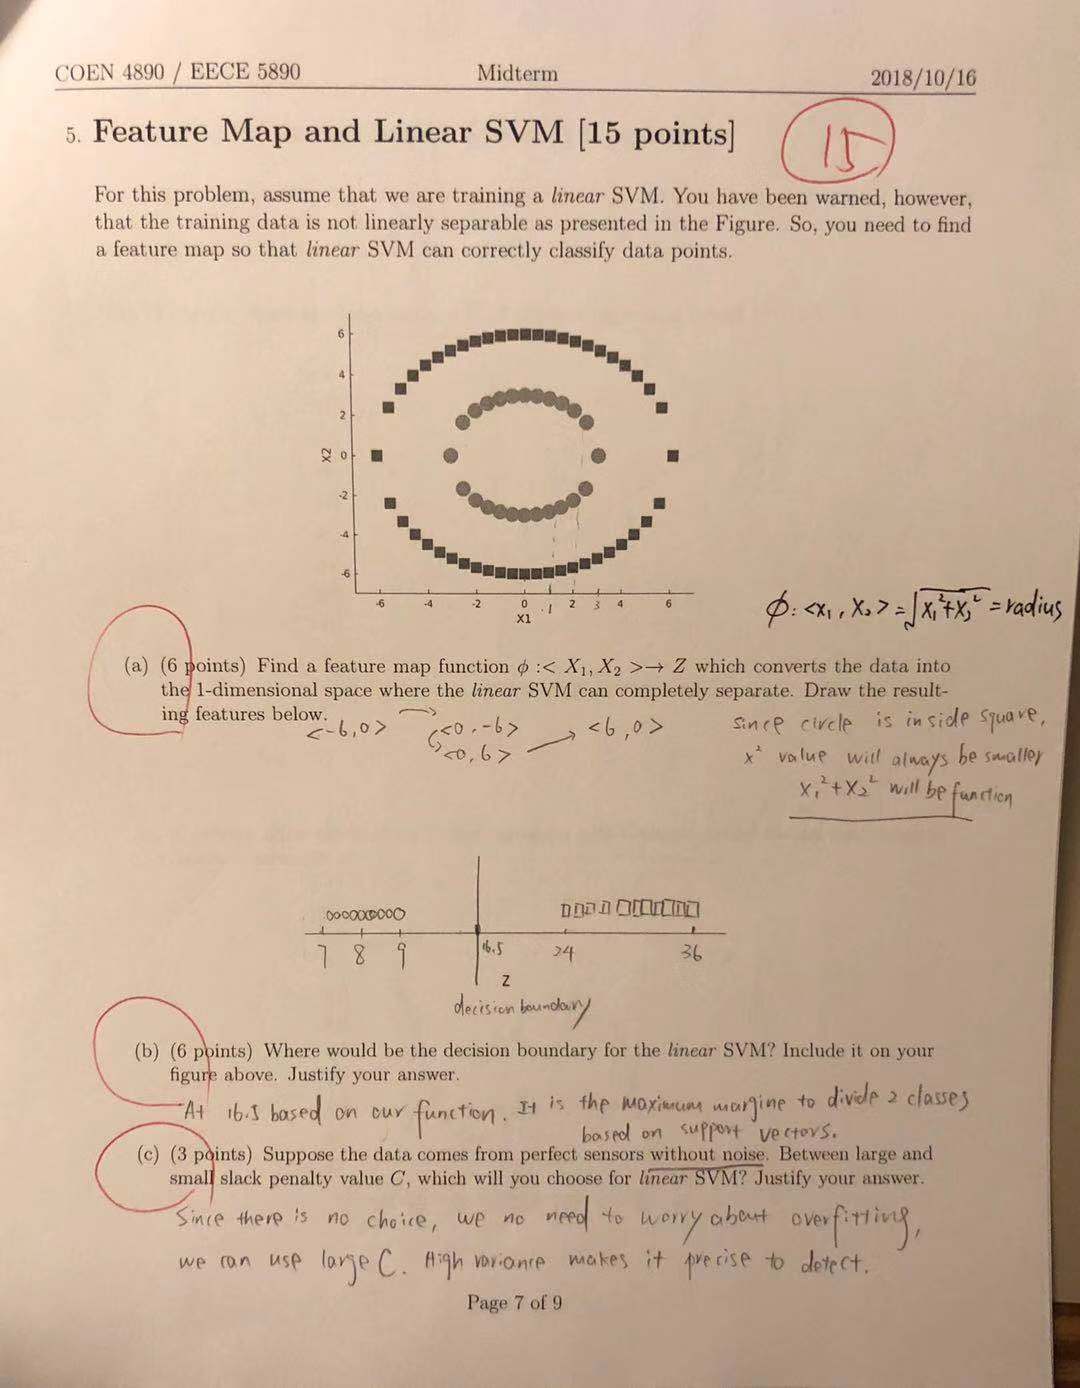 COEN 4890 / EECE 5890 Midterm 2018/10/16
5. Feature Map and Linear SVM [15 points]
15
For this problem, assume that we are training a linear SVM. You have been warned, however,
that the training data is not linearly separable as presented in the Figure. So, you need to find
a feature map so that linear SVM can correctly classify data points.
6
4
2
X2 0
-2
-4
-6
-6 -4 -2 0 1 2 3 4 6
X1
ϕ: <X₁, X₂> = √X₁²+X₂² = radius
(a) (6 points) Find a feature map function ϕ :< X₁, X₂ >→ Z which converts the data into
the 1-dimensional space where the linear SVM can completely separate. Draw the result-
ing features below.
<-6,0> <0,-6> <6,0>
<0,6>
Since circle is inside square,
x² value will always be smaller
X₁²+X₂² will be function
7 8 9 16.5 24 36
Z
decision boundary
(b) (6 points) Where would be the decision boundary for the linear SVM? Include it on your
figure above. Justify your answer.
At 16.5 based on our function. It is the maximum margine to divide 2 classes
based on support vectors.
(c) (3 points) Suppose the data comes from perfect sensors without noise. Between large and
small slack penalty value C, which will you choose for linear SVM? Justify your answer.
Since there is no choice, we no need to worry about overfitting,
we can use large C. High variance makes it precise to detect.
Page 7 of 9